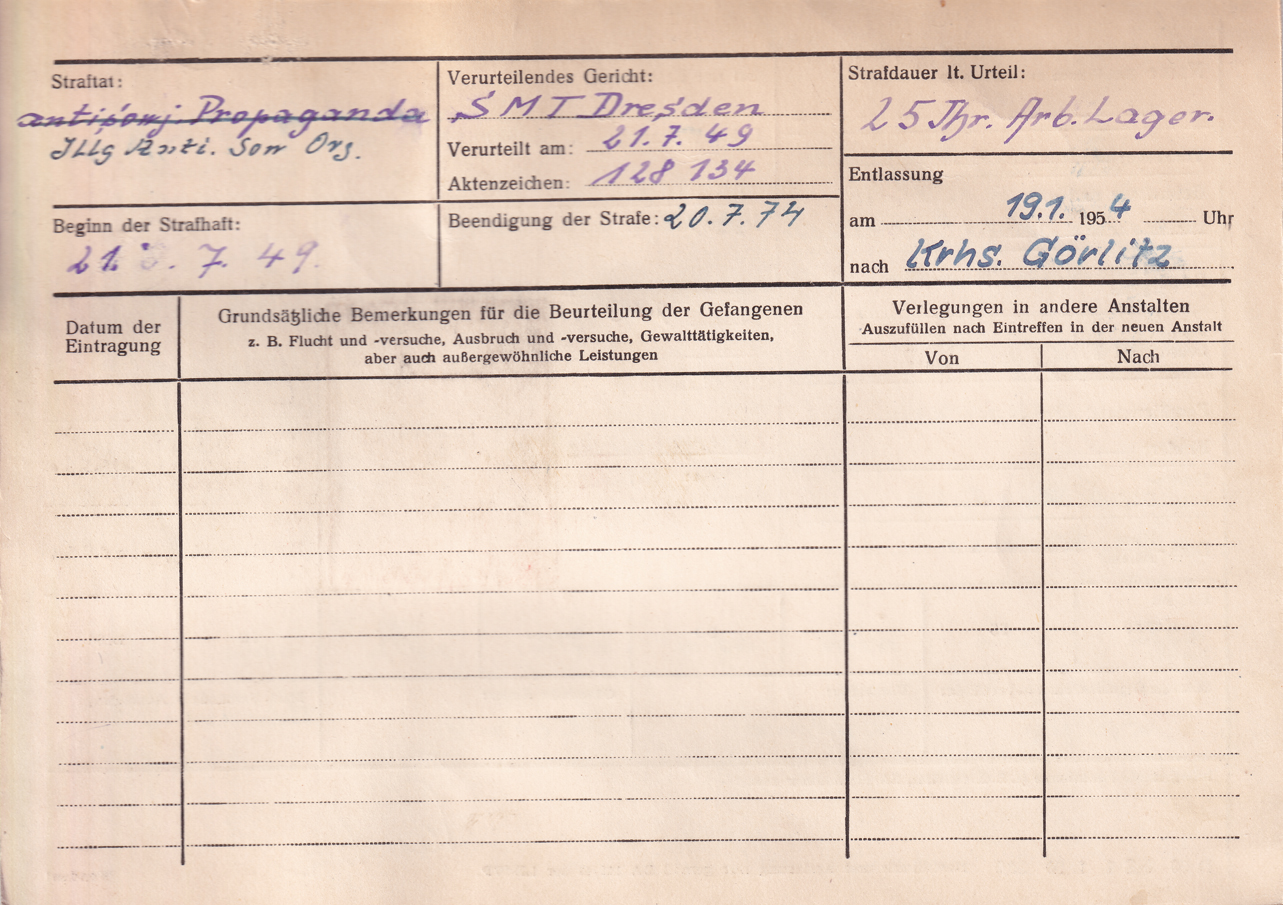 Straftat:
antisowj Propaganda
Illg Anti. Sow Org.
Verurteilendes Gericht:
SMT Dresden
Verurteilt am: 21.7.49
Aktenzeichen: 128 134
Strafdauer lt. Urteil:
25 Jhr. Arb. Lager.
Beginn der Strafhaft:
21. 7. 49.
Beendigung der Strafe: 20.7.74
Entlassung
am 19.1. 1954 Uhr
nach Krhs. Görlitz
Datum der
Eintragung
Grundsätzliche Bemerkungen für die Beurteilung der Gefangenen
z. B. Flucht und -versuche, Ausbruch und -versuche, Gewalttätigkeiten,
aber auch außergewöhnliche Leistungen
Verlegungen in andere Anstalten
Auszufüllen nach Eintreffen in der neuen Anstalt
Von
Nach